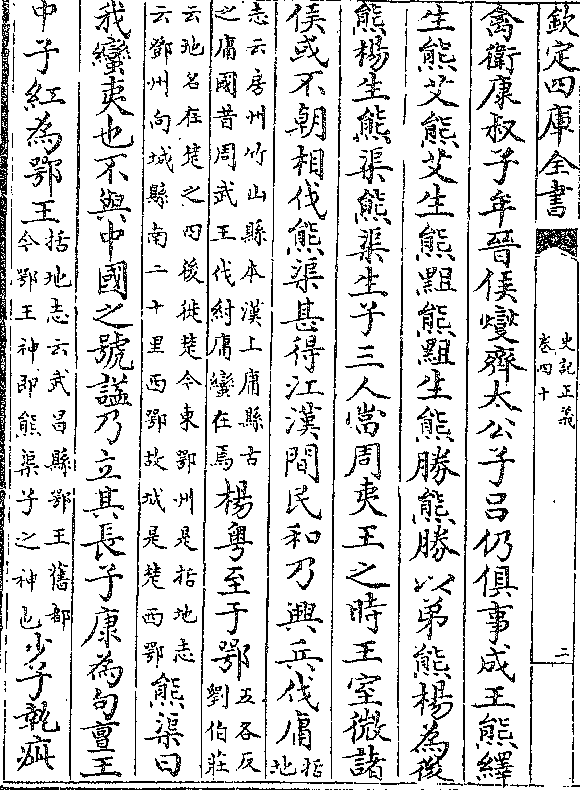 欽定四庫全書
史記正義
卷四十
二
禽衛康叔子牟晉侯燮齊太公子呂伋俱事成王熊繹
生熊艾熊艾生熊䵣熊䵣生熊勝熊勝以弟熊楊為後
熊楊生熊渠熊渠生子三人當周夷王之時王室微諸
侯或不朝相伐熊渠甚得江漢間民和乃興兵伐庸括地
志云房州竹山縣本漢上庸縣古
之庸國昔周武王伐紂庸蠻在焉楊粵至于鄂五各反劉伯莊
云地名在楚之西後徙楚今東鄂州是括地志
云鄧州向城縣南二十里西鄂故城是楚西鄂熊渠曰
我蠻夷也不與中國之號謚乃立其長子康為句亶王
中子紅為鄂王括地志云武昌縣鄂王舊都
今鄂王神即熊渠子之神也少子執疵